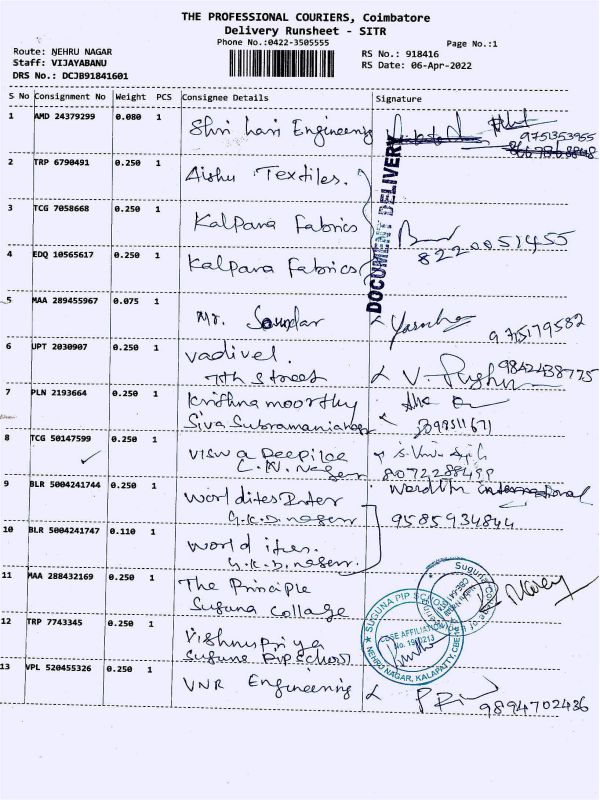 THE PROFESSIONAL COURIERS, Coimbatore
Delivery Runsheet - SITR
Phone No.:0422-3505555
Page No.:1
Route: NEHRU NAGAR
Staff: VIJAYABANU
DRS No.: DCJB91841601
RS No.: 918416
RS Date: 06-Apr-2022
S No Consignment No Weight PCS Consignee Details Signature
1 AMD 24379299 0.080 1 Shri hari Engineering
9751353955
2 TRP 6790491 0.250 1 Aishu Textiles.
DOCUMENT DELIVERY
3 TCG 7058668 0.250 1 Kalpana Fabrics
8220051455
4 EDQ 10565617 0.250 1 Kalpana Fabrics
5 MAA 289455967 0.075 1 Mr. Soundar
9715179582
6 UPT 2030907 0.250 1 Vadivel.
7th Street
9842438775
7 PLN 2193664 0.250 1 Krishna moorthy
Siva Subramaniam
8 TCG 50147599 0.250 1
9 BLR 5004241744 0.250 1
G.K.D. nagar
international
9585934844
10 BLR 5004241747 0.110 1 World
G.K.D. nagar.
11 MAA 288432169 0.250 1 The Principle
Suguna Collage
12 TRP 7743345 0.250 1 Vishnupriya
Suguna Pip School
SUGUNA PIP SCHOOL
CBSE AFFILIATION
NEHRU NAGAR, KALAPATTY, CBE
13 VPL 520455326 0.250 1 VNR Engineering
9894702436